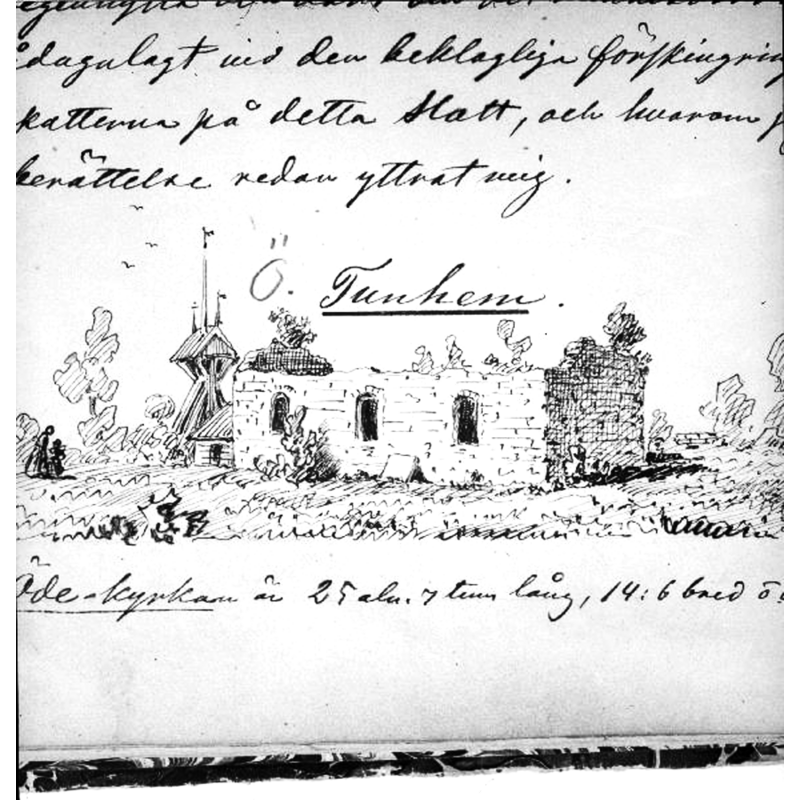 dagalagt vid den beklagliga förskingring
katterna på detta Slott, och hvarom
berättelse redan yttrat mig.
Ö. Tunhem.
Öde-kyrkan är 25 aln. 7 tum lång, 14:6 bred ö